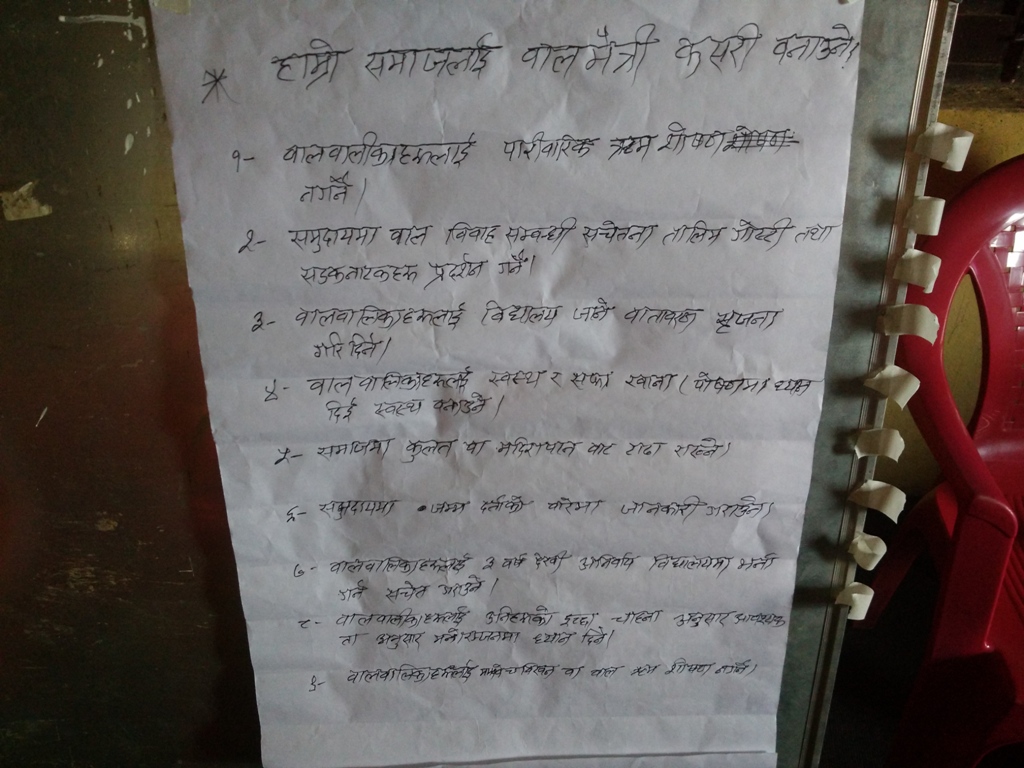 * हाम्रो समाजलाई वालमैत्री कसरी वनाउने।
१- वालवालीकाहरूलाई पारीवारिक श्रम शोषण
नगर्ने।
२- समुदायमा वाल विवाह सम्वन्धी सचेतना तालिम गोष्टी तथा
सडकनाटकहरू प्रदर्शन गर्ने।
३- वालवालिकाहरूलाई विद्यालय जाने वातावरण सृजना
गरि दिने।
४- वालवालिकाहरूलाई स्वस्थ र सफा खाना (पोषणमा ध्यान
दिई स्वस्थ वनाउने।
५- समाजमा कुलत वा मदिरापान वाट टाढा राख्ने।
६- समुदायमा जन्म दर्ताको वारेमा जानकारी गराउने।
७- वालवालिकाहरूलाई ३ वर्ष देखी अनिवार्य विद्यालयमा भर्ना
गर्न सचेत गराउने।
८- वालवालीकाहरूलाई उनिहरूको इच्छा चाहना अनुसार आवश्यक
ता अनुसार मनोरञ्जनमा ध्यान दिने।
९- वालवालिकाहरूलाई वा वाल श्रम शोषण नगर्ने।